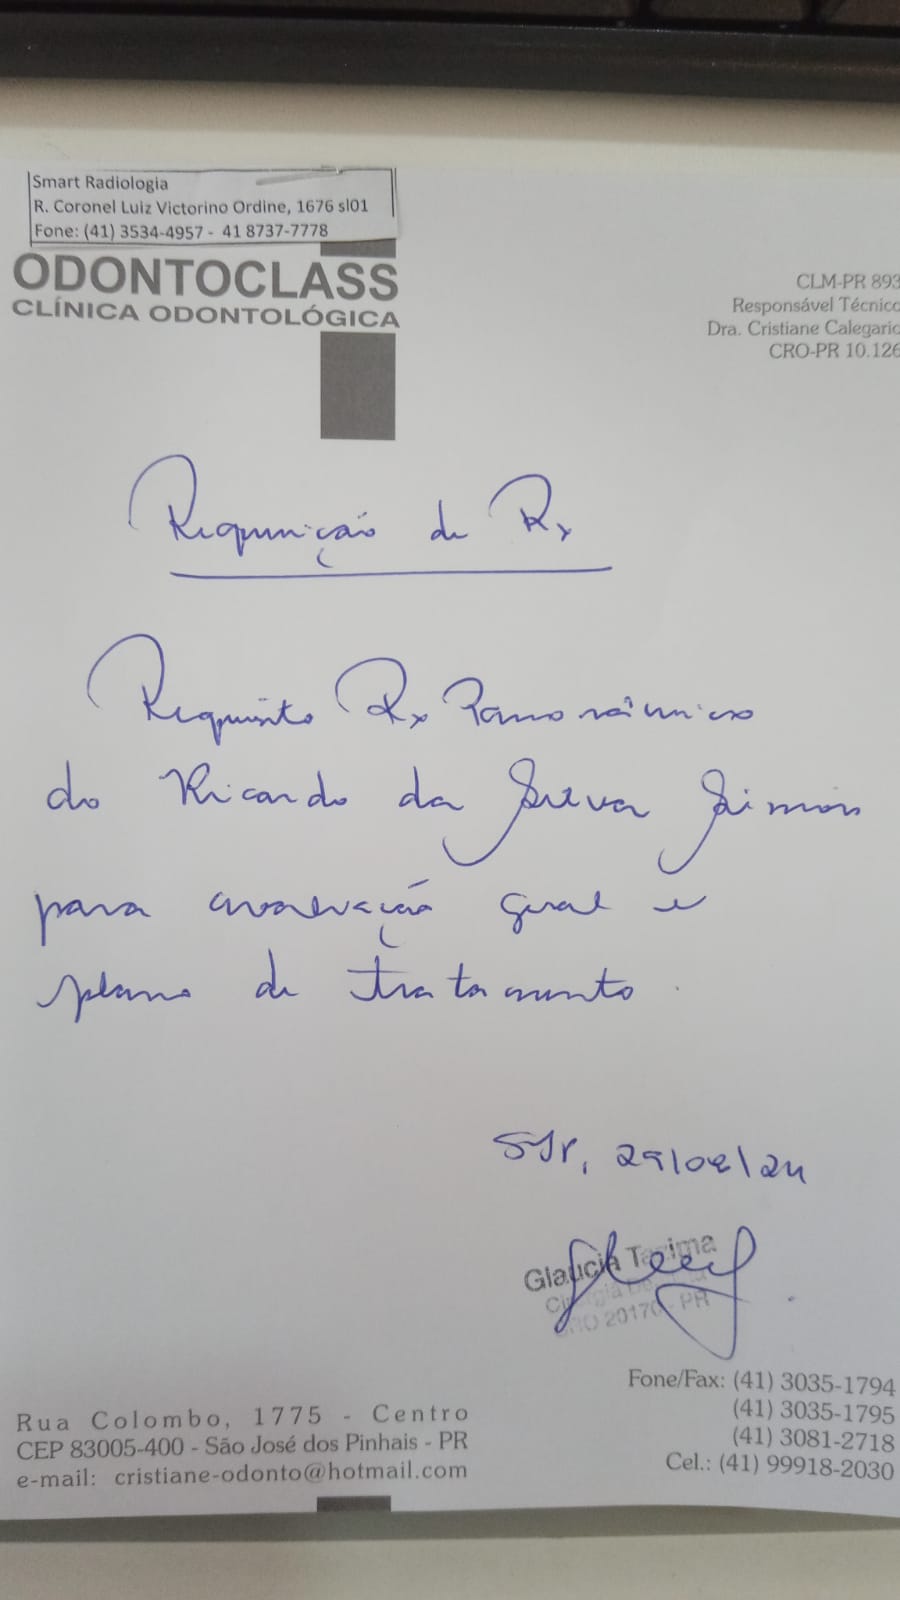 Smart Radiologia
R. Coronel Luiz Victorino Ordine, 1676 sl01
Fone: (41) 3534-4957 - 41 8737-7778
ODONTOCLASS
CLÍNICA ODONTOLÓGICA
CLM-PR 893
Responsável Técnico
Dra. Cristiane Calegario
CRO-PR 10.126
Requisição de Rx
Requisito Rx Panorâmico
do Ricardo da Silva Simon
para avaliação geral e
plano de tratamento.
SJP, 29/02/24
Glaucia Tazima
Cirurgiã Dentista
CRO 20170 - PR
Fone/Fax: (41) 3035-1794
(41) 3035-1795
(41) 3081-2718
Cel.: (41) 99918-2030
Rua Colombo, 1775 - Centro
CEP 83005-400 - São José dos Pinhais - PR
e-mail: cristiane-odonto@hotmail.com